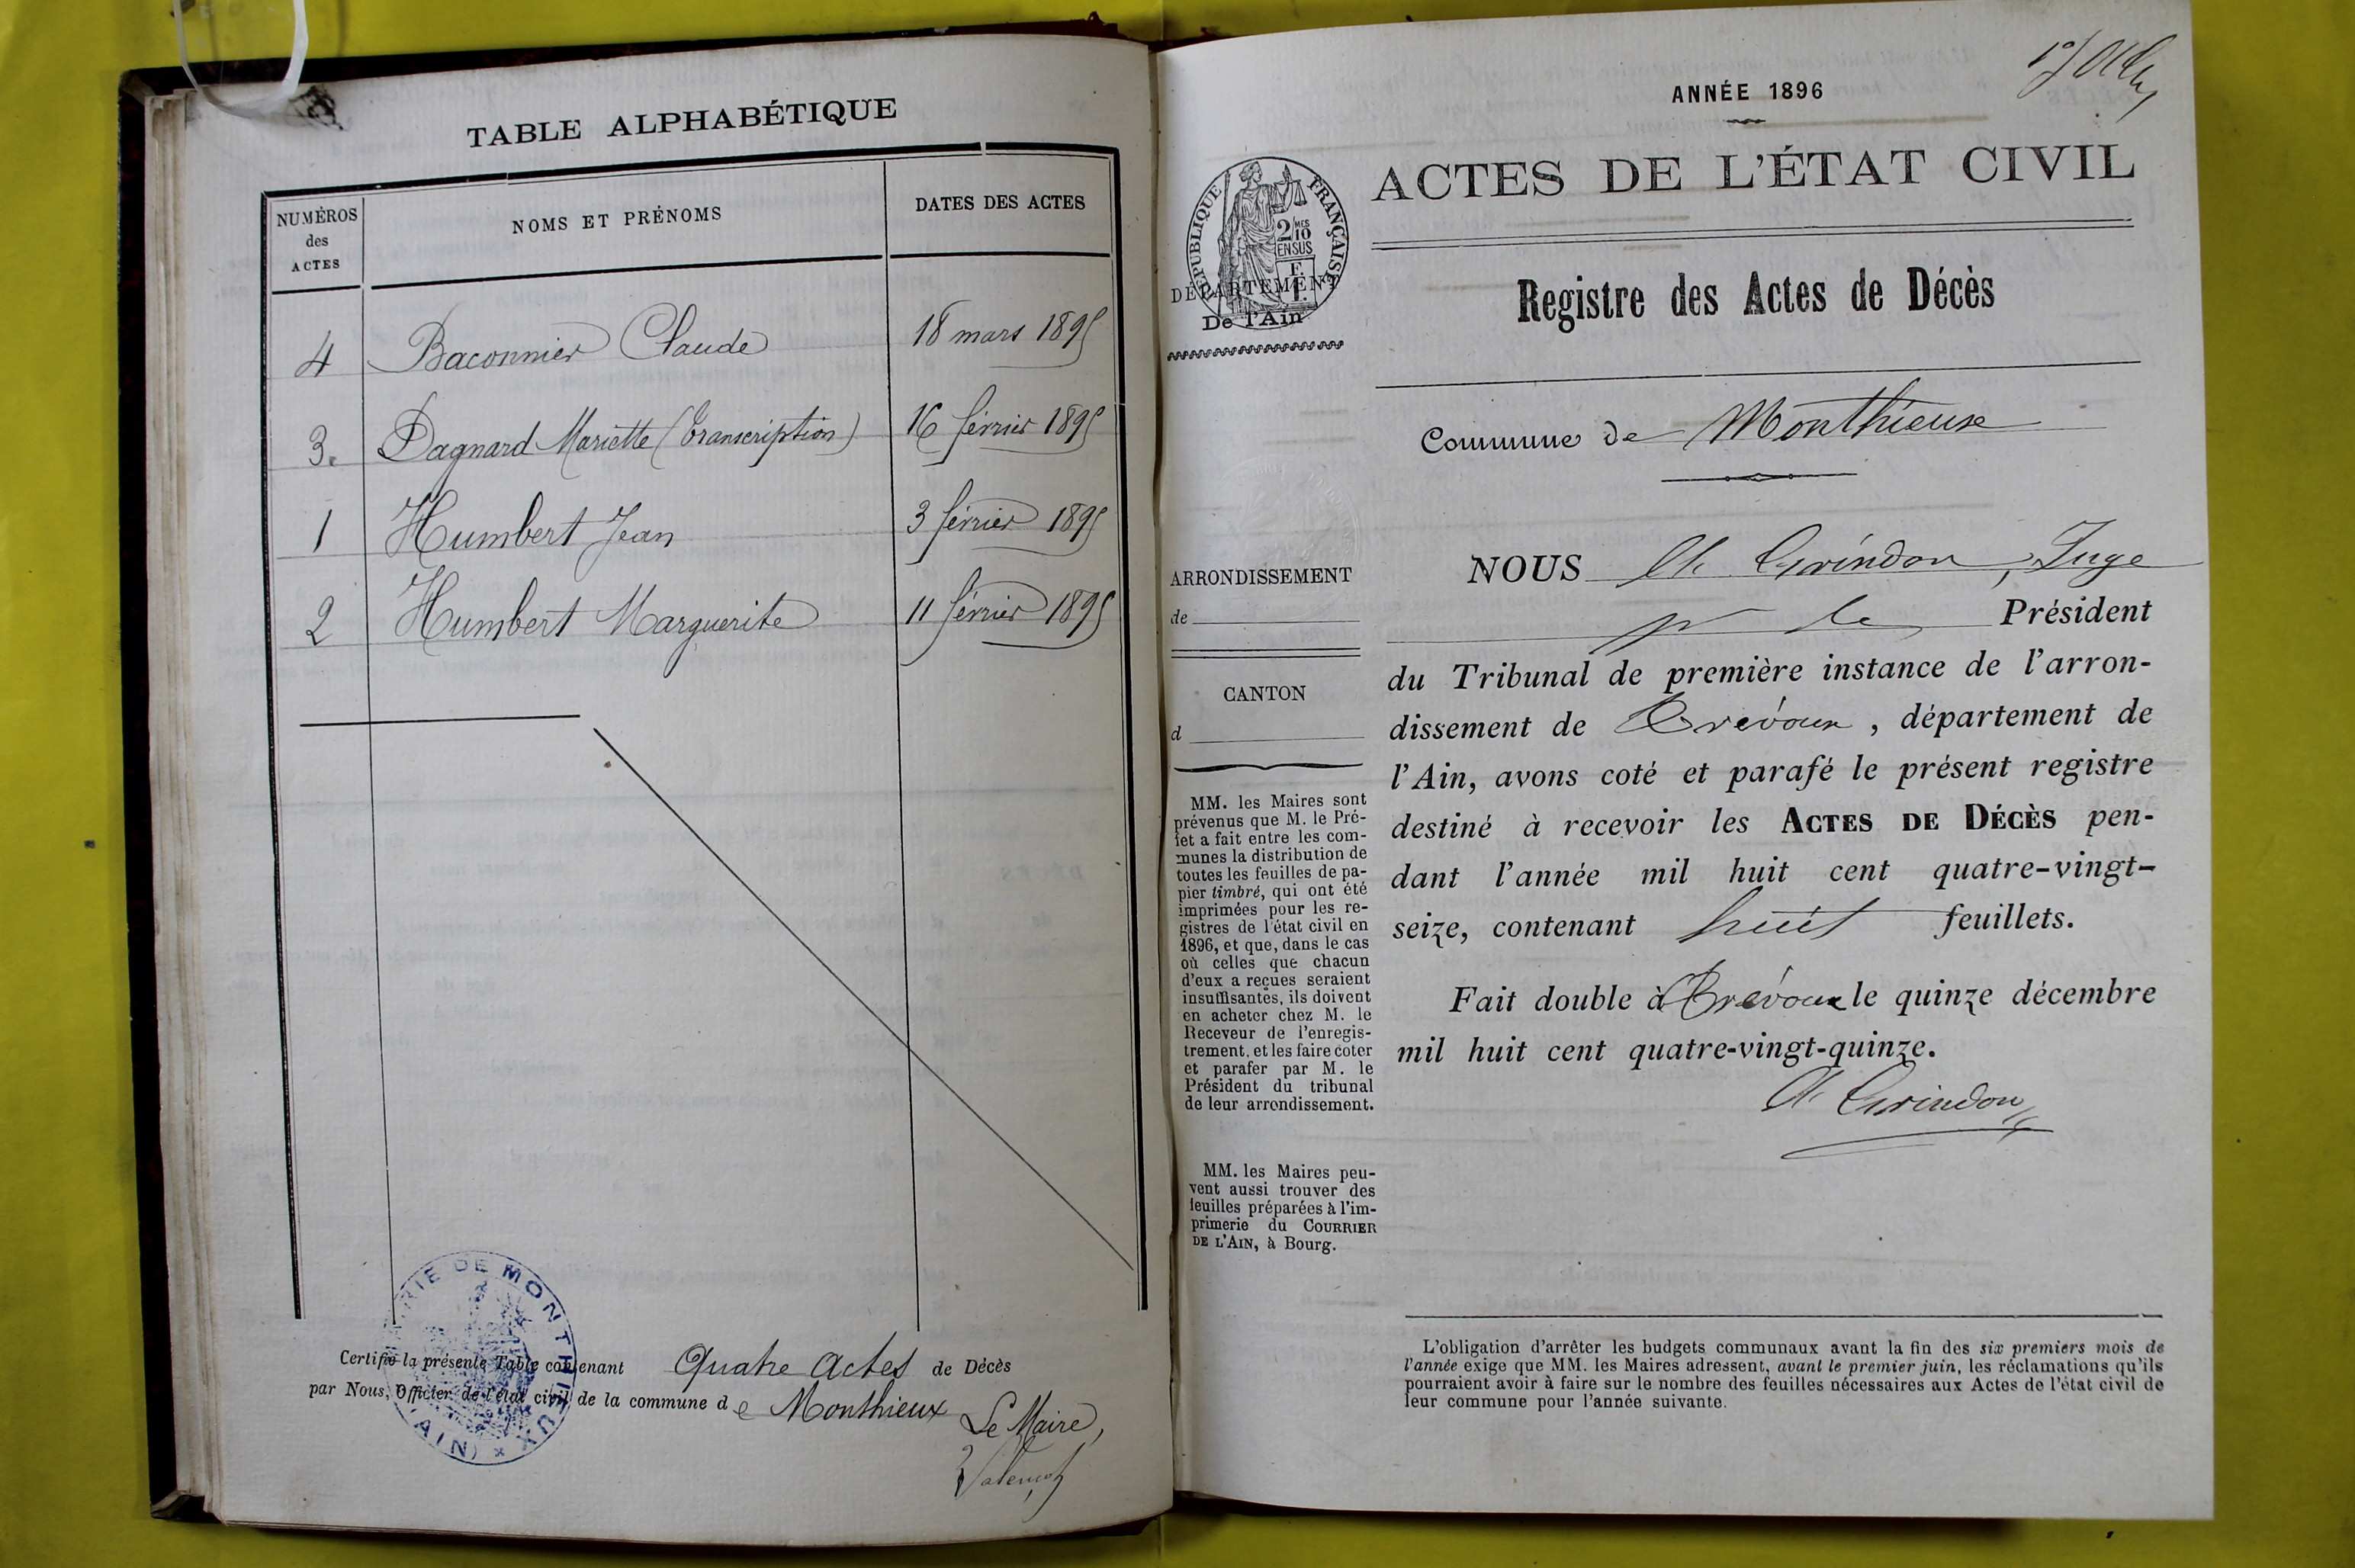 TABLE ALPHABÉTIQUE
NUMÉROS
des
ACTES
NOMS ET PRÉNOMS
DATES DES ACTES
4 Baconnier Claude 18 mars 1895
3. Dagnard Mariette (Transcription) 16 février 1895
1 Humbert Jean 3 février 1895
2 Humbert Marguerite 11 février 1895
Certifié la présente Table contenant Quatre Actes de Décès
par Nous, Officier de l'état civil de la commune de Monthieux
Le Maire,
MAIRIE DE MONTHIEUX
(AIN)
ANNÉE 1896
ACTES DE L'ÉTAT CIVIL
RÉPUBLIQUE FRANÇAISE
2 MES
10
EN SUS
DÉPARTEMENT
De l'Ain
Registre des Actes de Décès
Commune de Monthieux
ARRONDISSEMENT
de
CANTON
d
MM. les Maires sont
prévenus que M. le Pré-
fet a fait entre les com-
munes la distribution de
toutes les feuilles de pa-
pier timbré, qui ont été
imprimées pour les re-
gistres de l'état civil en
1896, et que, dans le cas
où celles que chacun
d'eux a reçues seraient
insuffisantes, ils doivent
en acheter chez M. le
Receveur de l'enregis-
trement, et les faire coter
et parafer par M. le
Président du tribunal
de leur arrondissement.
MM. les Maires peu-
vent aussi trouver des
feuilles préparées à l'im-
primerie du COURRIER
DE L'AIN, à Bourg.
NOUS Ch Grindon, Juge
pr le Président
du Tribunal de première instance de l'arron-
dissement de Trévoux, département de
l'Ain, avons coté et parafé le présent registre
destiné à recevoir les ACTES DE DÉCÈS pen-
dant l'année mil huit cent quatre-vingt-
seize, contenant huit feuillets.
Fait double à Trévoux le quinze décembre
mil huit cent quatre-vingt-quinze.
Ch Grindon
L'obligation d'arrêter les budgets communaux avant la fin des six premiers mois de
l'année exige que MM. les Maires adressent, avant le premier juin, les réclamations qu'ils
pourraient avoir à faire sur le nombre des feuilles nécessaires aux Actes de l'état civil de
leur commune pour l'année suivante.